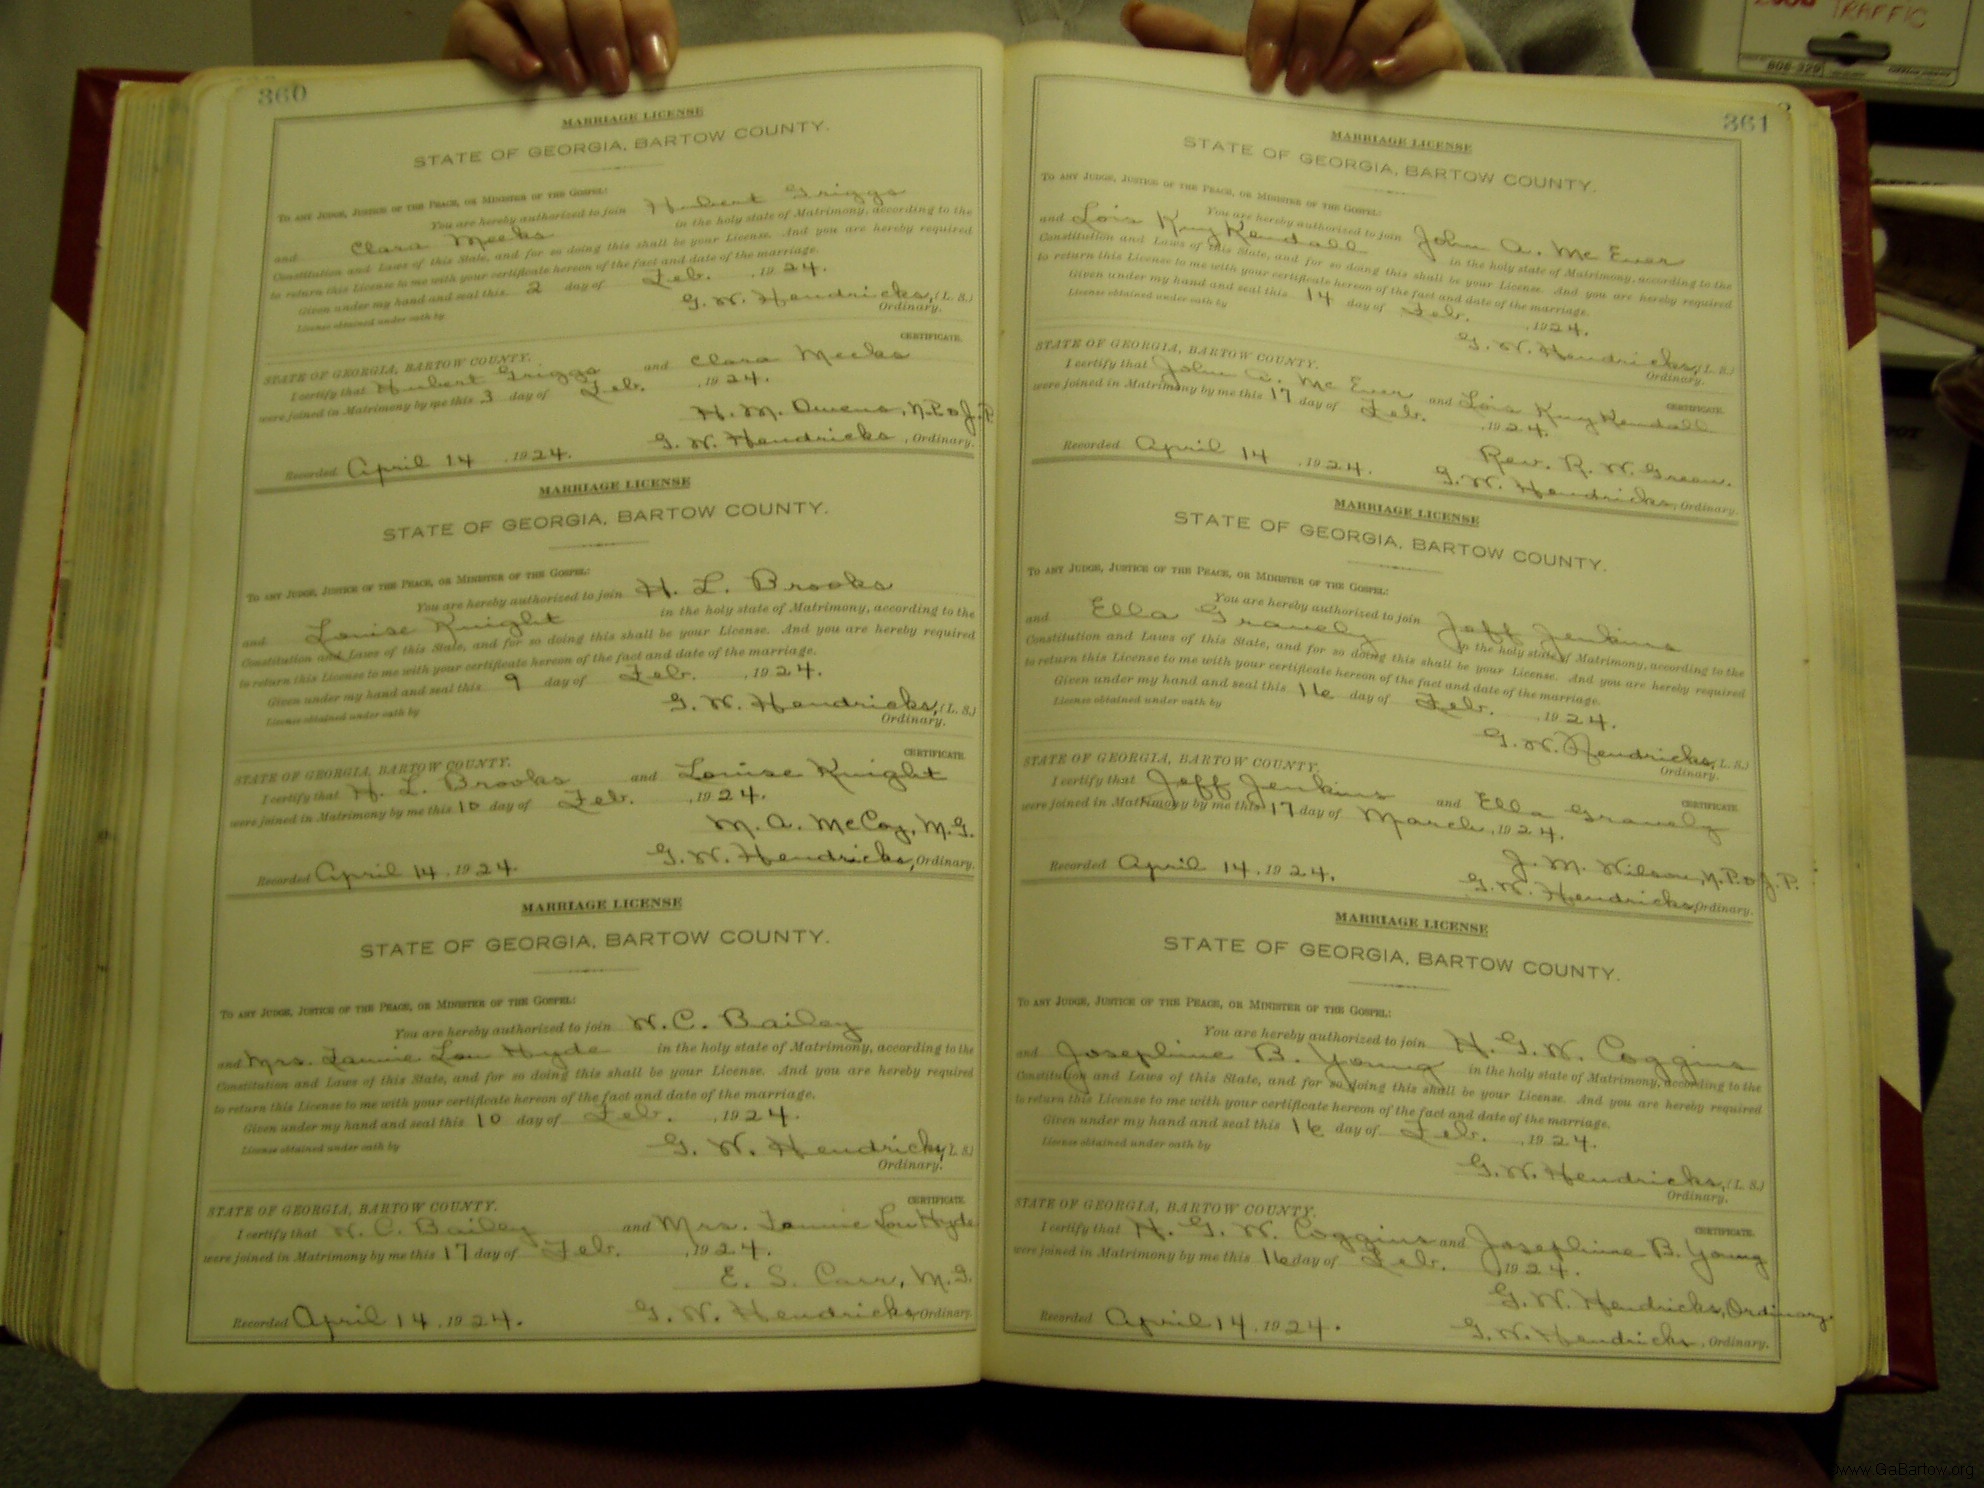 360
MARRIAGE LICENSE
STATE OF GEORGIA, BARTOW COUNTY.
TO ANY JUDGE, JUSTICE OF THE PEACE, OR MINISTER OF THE GOSPEL:
You are hereby authorized to join Hubert Griggs
and Clara Meeks in the holy state of Matrimony, according to the
Constitution and Laws of this State, and for so doing this shall be your License. And you are hereby required
to return this License to me with your certificate hereon of the fact and date of the marriage.
Given under my hand and seal this 2 day of Feb. , 1924.
License obtained under oath by G. W. Hendricks, (L. S.)
Ordinary.
CERTIFICATE.
STATE OF GEORGIA, BARTOW COUNTY.
I certify that Hubert Griggs and Clara Meeks
were joined in Matrimony by me this 3 day of Feb. , 1924.
H. M. Owens, N.P. & J.P.
Recorded April 14 , 1924. G. W. Hendricks , Ordinary.
MARRIAGE LICENSE
STATE OF GEORGIA, BARTOW COUNTY.
TO ANY JUDGE, JUSTICE OF THE PEACE, OR MINISTER OF THE GOSPEL:
You are hereby authorized to join H. L. Brooks
and Louise Knight in the holy state of Matrimony, according to the
Constitution and Laws of this State, and for so doing this shall be your License. And you are hereby required
to return this License to me with your certificate hereon of the fact and date of the marriage.
Given under my hand and seal this 9 day of Feb. , 1924.
License obtained under oath by G. W. Hendricks, (L. S.)
Ordinary.
CERTIFICATE.
STATE OF GEORGIA, BARTOW COUNTY.
I certify that H. L. Brooks and Louise Knight
were joined in Matrimony by me this 10 day of Feb. , 1924.
M. A. McCoy, M.G.
Recorded April 14 , 1924. G. W. Hendricks, Ordinary.
MARRIAGE LICENSE
STATE OF GEORGIA, BARTOW COUNTY.
TO ANY JUDGE, JUSTICE OF THE PEACE, OR MINISTER OF THE GOSPEL:
You are hereby authorized to join W. C. Bailey
and Mrs. Lou Hyde in the holy state of Matrimony, according to the
Constitution and Laws of this State, and for so doing this shall be your License. And you are hereby required
to return this License to me with your certificate hereon of the fact and date of the marriage.
Given under my hand and seal this 10 day of Feb. , 1924.
License obtained under oath by G. W. Hendricks, (L. S.)
Ordinary.
CERTIFICATE.
STATE OF GEORGIA, BARTOW COUNTY.
I certify that W. C. Bailey and Mrs. Lou Hyde
were joined in Matrimony by me this 17 day of Feb. , 1924.
E. S. Carr, M.G.
Recorded April 14 , 1924. G. W. Hendricks, Ordinary.
361
MARRIAGE LICENSE
STATE OF GEORGIA, BARTOW COUNTY.
TO ANY JUDGE, JUSTICE OF THE PEACE, OR MINISTER OF THE GOSPEL:
You are hereby authorized to join John A. McEver
and Lois Kuykendall in the holy state of Matrimony, according to the
Constitution and Laws of this State, and for so doing this shall be your License. And you are hereby required
to return this License to me with your certificate hereon of the fact and date of the marriage.
Given under my hand and seal this 14 day of Feb. , 1924.
License obtained under oath by G. W. Hendricks, (L. S.)
Ordinary.
STATE OF GEORGIA, BARTOW COUNTY.
CERTIFICATE.
I certify that John A. McEver and Lois Kuykendall
were joined in Matrimony by me this 17 day of Feb. , 1924.
Rev. R. W. Green.
Recorded April 14 , 1924. G. W. Hendricks, Ordinary.
MARRIAGE LICENSE
STATE OF GEORGIA, BARTOW COUNTY.
TO ANY JUDGE, JUSTICE OF THE PEACE, OR MINISTER OF THE GOSPEL:
You are hereby authorized to join Jeff Jenkins
and Ella Gravely in the holy state of Matrimony, according to the
Constitution and Laws of this State, and for so doing this shall be your License. And you are hereby required
to return this License to me with your certificate hereon of the fact and date of the marriage.
Given under my hand and seal this 16 day of Feb. , 1924.
License obtained under oath by G. W. Hendricks, (L. S.)
Ordinary.
STATE OF GEORGIA, BARTOW COUNTY.
CERTIFICATE.
I certify that Jeff Jenkins and Ella Gravely
were joined in Matrimony by me this 17 day of March , 1924.
J. M. Wilson, N.P. & J.P.
Recorded April 14 , 1924. G. W. Hendricks, Ordinary.
MARRIAGE LICENSE
STATE OF GEORGIA, BARTOW COUNTY.
TO ANY JUDGE, JUSTICE OF THE PEACE, OR MINISTER OF THE GOSPEL:
You are hereby authorized to join H. G. W. Coggins
and Josephine B. Young in the holy state of Matrimony, according to the
Constitution and Laws of this State, and for so doing this shall be your License. And you are hereby required
to return this License to me with your certificate hereon of the fact and date of the marriage.
Given under my hand and seal this 16 day of Feb. , 1924.
License obtained under oath by G. W. Hendricks, (L. S.)
Ordinary.
STATE OF GEORGIA, BARTOW COUNTY.
CERTIFICATE.
I certify that H. G. W. Coggins and Josephine B. Young
were joined in Matrimony by me this 16 day of Feb. , 1924.
G. W. Hendricks, Ordinary.
Recorded April 14 , 1924. G. W. Hendricks , Ordinary.
2000 TRAFFIC
808-329
www.GaBartow.org